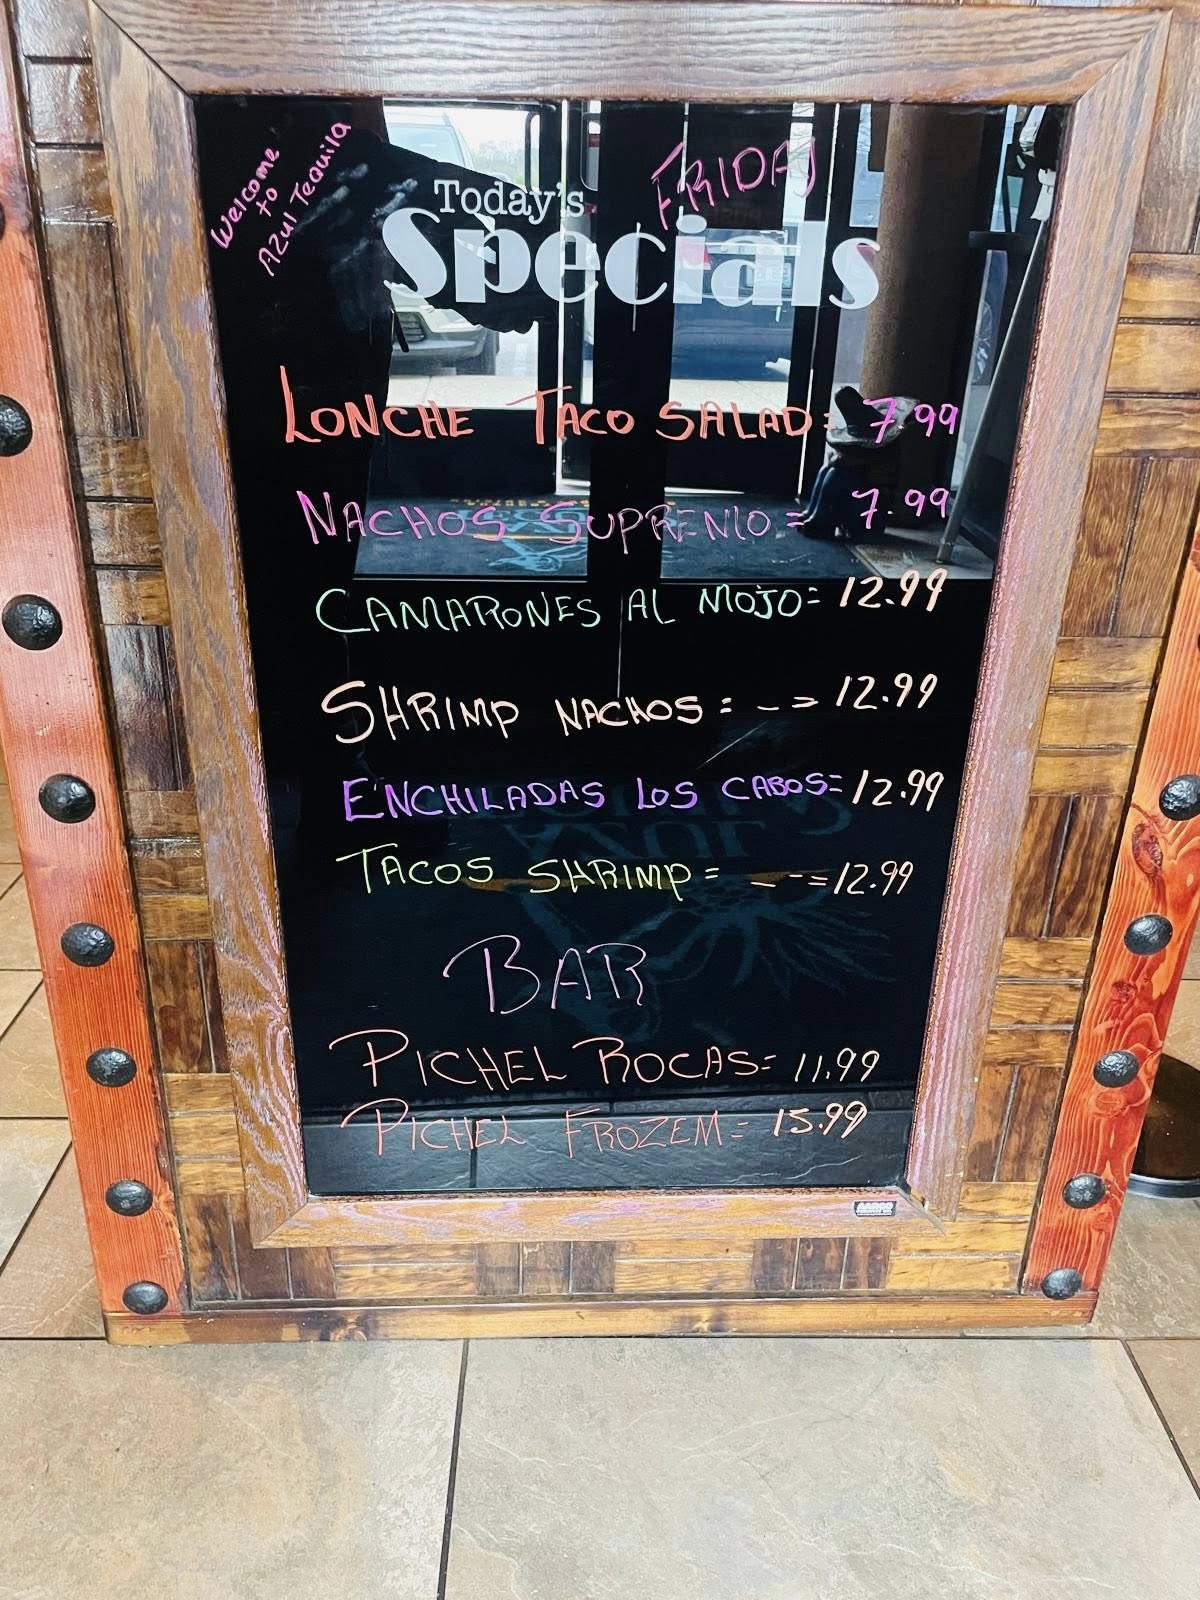 Welcome
to
Azul Tequila
FRIDAY
Today's
Specials
LONCHE TACO SALAD= 7.99
NACHOS SUPREMO= 7.99
CAMARONES AL MOJO= 12.99
SHRIMP NACHOS = - = 12.99
ENCHILADAS LOS CABOS= 12.99
TACOS SHRIMP = - - = 12.99
BAR
PICHEL ROCAS= 11.99
PICHEL FROZEM= 15.99